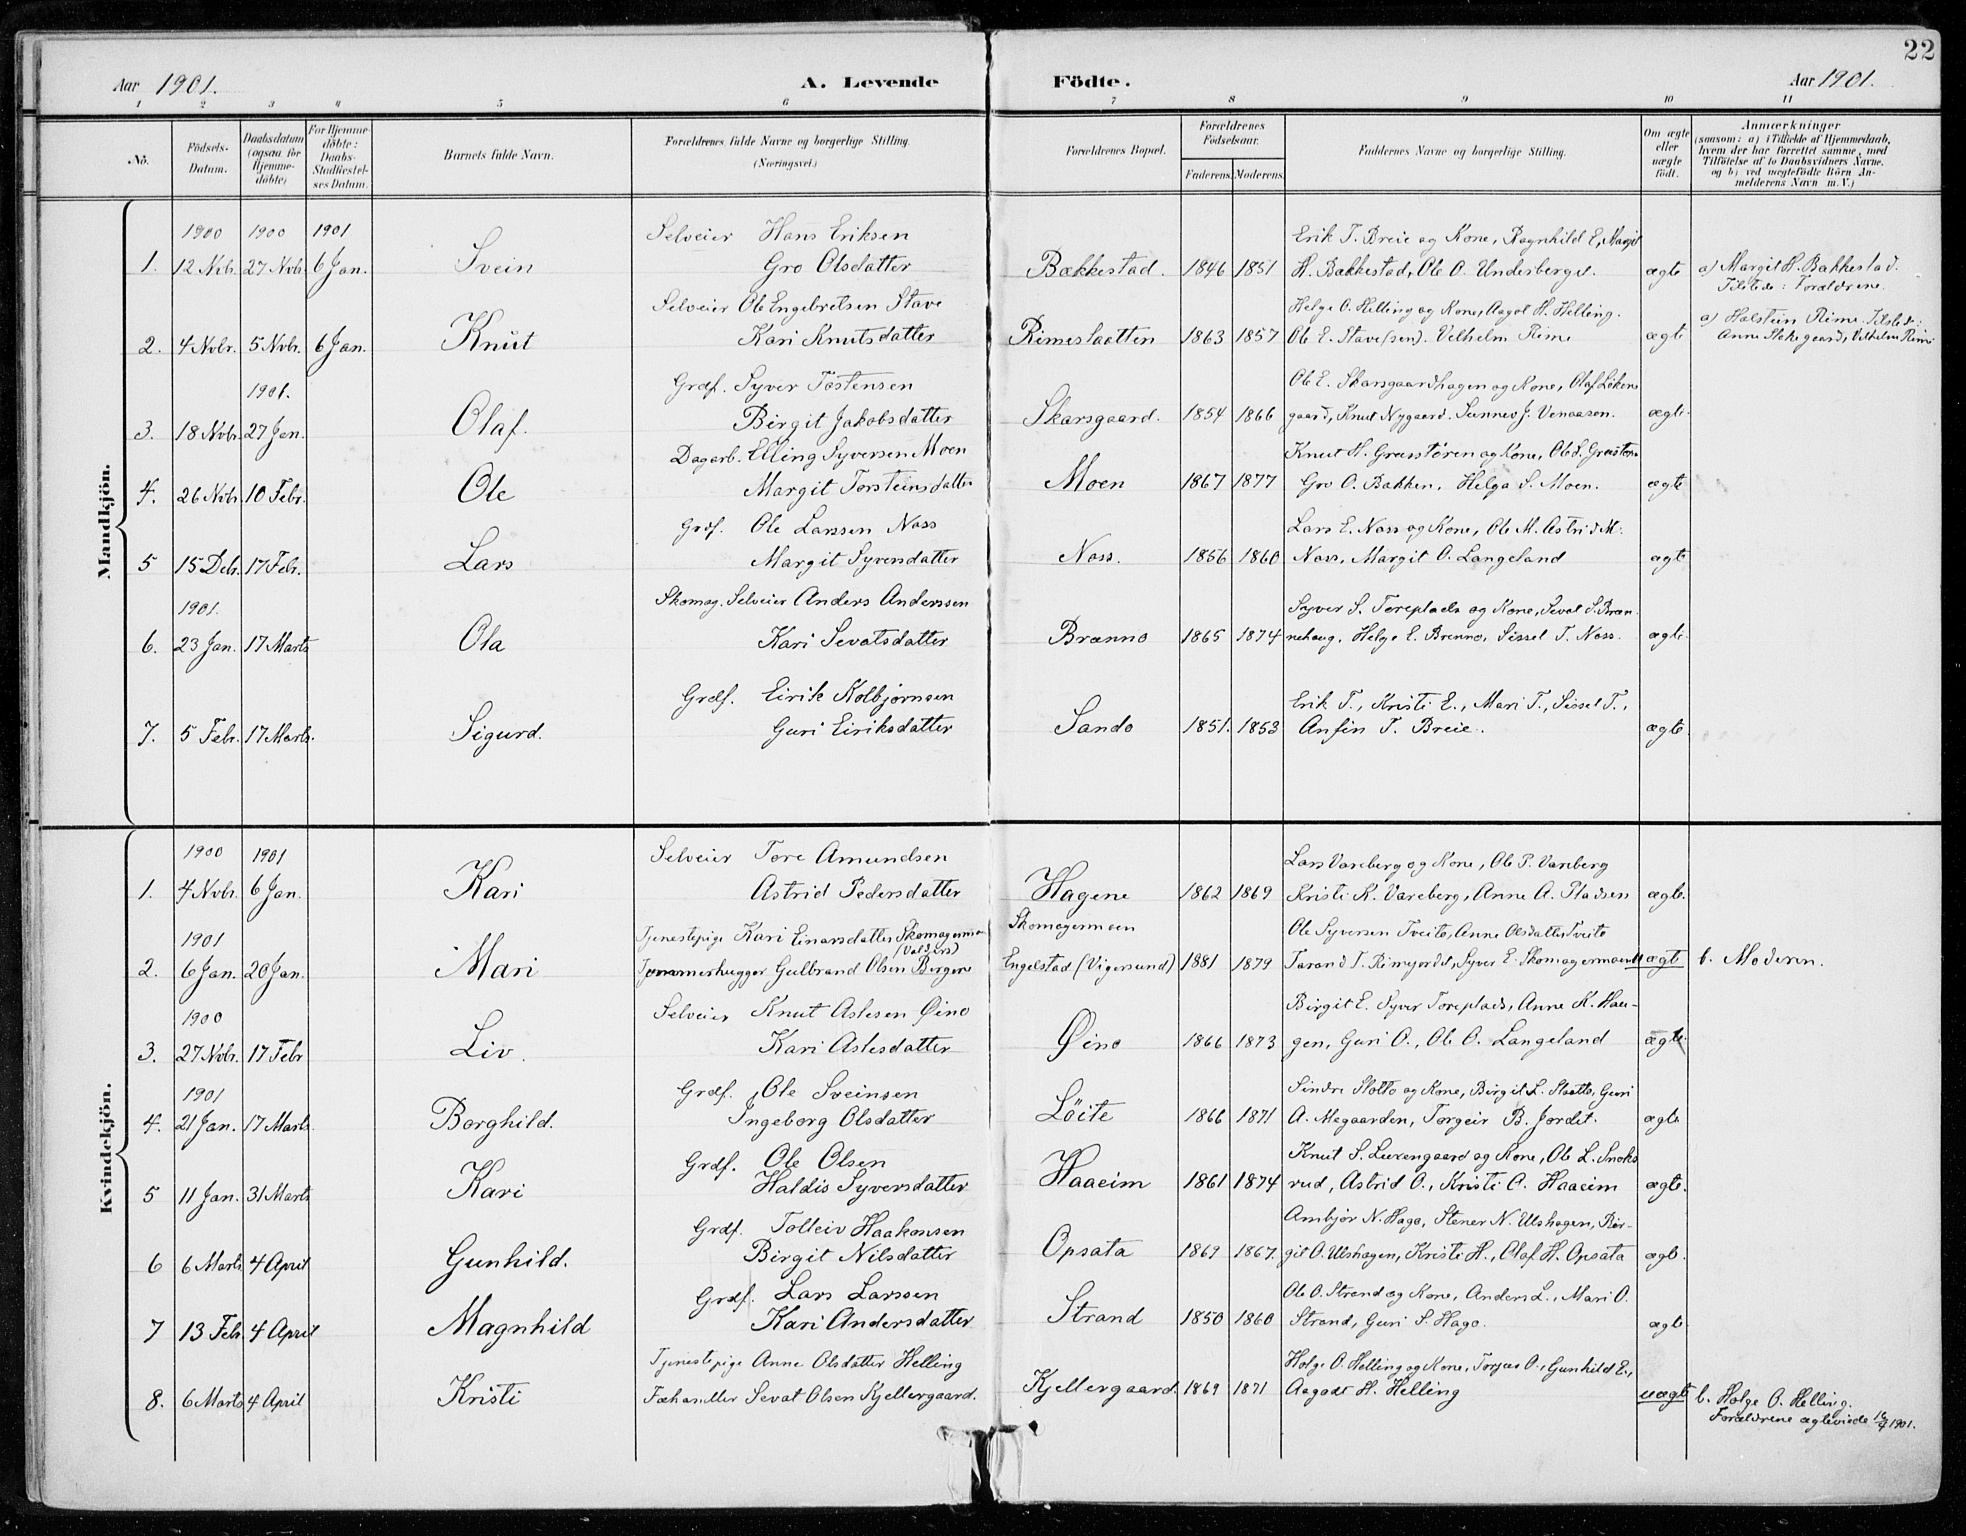 22
Aar 1901. A. Levende Födte. Aar 1901.
1 2 3 4 5 6 7 8 9 10 11
No. Födsels-Datum. Daabsdatum (ogsaa for Hjemmedöbte) For Hjemmedöbte: Daabs-Stadfæstelses Datum. Barnets fulde Navn. Forældrenes fulde Navne og borgerlige Stilling. (Næringsvei.) Forældrenes Bopæl. Forældrenes Födselsaar. Faderens. Moderens. Faddernes Navne og borgerlige Stilling. Om ægte eller uægte födt. Anmærkninger (saasom: a) i Tilfælde af Hjemmedaab, hvem der har forrettet samme, med Tilföielse af to Daabsvidners Navne, og b) ved uægtefödte Börn Anmelderens Navn m. V.)
Mandkjön.
1900 1900 1901 Selveier Hans Eriksen Erik T. Breie og Kone, Ragnhild E, Margit
1. 12 Nvbr. 27 Nvb. 6 Jan. Svein Gro Olsdatter Bækkestad. 1846 1851 H. Bækkestad, Ole O. Underberget. ægte a) Margit H. Bækkestad.
Tilstede: Forældrene.
Selveier Ole Engebretsen Stave Helge O. Helling og Kone, Aagot H. Helling.
2. 4 Nvbr. 5 Nvbr. 6 Jan. Knut Kari Knutsdatter Rimeslaatten 1863 1857 Ole E. Stave (sen). Velhelm Rime ægte a) Halstein Rime. Tilsted:
Anne Stekegaard, Vilhelm Rime
1901. Grdf. Syver Tostensen Ole E. Skarsgaardhagen og Kone, Olaf Løkens
3. 18 Nvbr. 27 Jan. Olaf. Birgit Jakobsdatter Skarsgaard. 1854 1866 gaard, Knut Nygaard. Sunnev J. Venaasen. ægte.
Dagarb. Elling Syversen Moen Knut H. Græsstøren og Kone, Ole S. Græstøren
4. 26 Nvbr. 10 Febr. Ole Margit Torsteinsdatter Moen 1867 1877 Gro O. Bakken, Helga S. Moen. ægte
Grdf. Ole Larssen Næss Lars E. Næss og Kone, Ole M. Astrid M.
5 15 Debr. 17 Febr. Lars Margit Syversdatter Næss. 1856 1860 Næss, Margit O. Langeland ægte
1901. Skomag. Selveier Anders Anderssen Syver S. Toreplads og Kone, Sevat S. Bræn
6. 23 Jan. 17 Marts Ola Kari Sevatsdatter Brænno 1865 1874 nehaug, Helge E. Brenno, Sissel T. Næss. ægte.
Grdf. Eirik Kolbjørnsen Erik T., Kristi E., Mari T., Sissel T.,
7. 5 Febr. 17 Marts. Sigurd. Guri Eiriksdatter Sando 1851. 1853 Anfin T. Breie. ægte.
Kvindekjön.
1900 1901 Selveier Tore Amundsen Lars Vareberg og Kone, Ole P. Vareberg
1. 4 Nvbr. 6 Jan. Kari Astrid Pedersdatter Hagene 1862 1869 Kristi K. Vareberg, Anne A. Pladsen ægte.
1901 Tjenestepige Kari Einarsdatter Skomagermoen Skomagermoen Ole Syversen Tveito, Anne Olsdatter Tveito
(Valders)
2. 6 Jan. 20 Jan. Mari Tømmerhugger Gulbrand Olsen Bergene Engelstad (Vigersund) 1881 1879 Tarand T. Rimejordet, Syver E. Skomagermoen uægte b. Moderen.
1900 Selveier Knut Aslesen Øino Birgit E. Syver Toreplads, Anne K. Hau-
3. 27 Nvbr. 17 Febr Liv. Kari Aslesdatter Øino 1866 1873 gen, Guri O., Ole O. Langeland ægte.
1901 Grdf. Ole Sveinsen Sindre Slotto og Kone, Birgit L. Slaatto, Guri
4. 21 Jan. 17 Marts. Borghild. Ingeborg Olsdatter Løite 1866 1871 A. Megaarden, Torgeir B. Jordet. ægte
Grdf. Ole Olsen Knut S. Luxengaard og Kone, Ole L. Snoks
5 11 Jan. 31 Marts Kari Haldis Syversdatter Haaeim 1861 1874 rud, Astrid O., Kristi O. Haaeim ægte.
Grdf. Tolleiv Haakonsen Ambjør N. Hago, Stener N. Ulshagen, Bir-
6 6 Marts 4 April Gunhild. Birgit Nilsdatter Opsata 1869 1867. git O. Ulshagen, Kristi H., Olaf H. Opsata ægte.
Grdf. Lars Larssen Ole O. Strand og Kone, Anders L., Mari O.
7 13 Febr. 4 April Magnhild Kari Andersdatter Strand 1850 1860 Strand, Guri S. Hago. ægte.
Tjenestepige Anne Olsdatter Helling Holge O. Helling og Kone, Torjus O., Gunhild E.,
8. 6 Marts 4 April Kristi Fæhandler Sevat Olsen Kjellergaard. Kjellergaard. 1869 1871 Aagodt H. Helling uægte b. Holge O. Helling.
Forældrene ægteviede 16/4 1901.